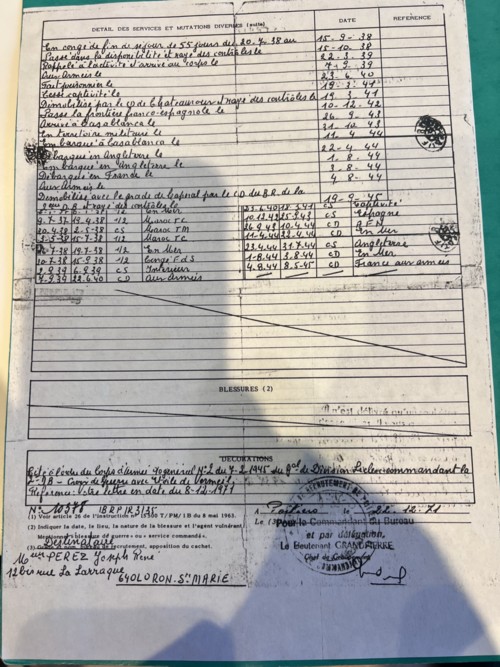 DÉTAIL DES SERVICES ET MUTATIONS DIVERSES (suite) DATE REFERENCE
En congé de fin de séjour de 55 jours du 20.7.38 au 15-9-38
Passé dans la disponibilité et rayé des contrôles le 15-10-38
Rappelé à l'activité et arrivé au corps le 22-3-39
Aux Armées le 7-9-39
Fait prisonnier le 23-6-40
Cesse captivité le
Démobilisé par le CD de Chateauroux et rayé des contrôles le 19-3-41
Passe la frontière franco-espagnole le 10-12-42
Arrivé à Casablanca le 26-9-43
En territoire militaire le 31-10-43
Embarqué à Casablanca le 11-4-44
Débarqué en Angleterre le 22-4-44
Embarqué en Angleterre le 1-8-44
Débarqué en France le 3-8-44
Aux Armées le 4-8-44
Démobilisé avec le grade de Caporal par le CD du B.R. de la
2ème D.B et rayé des contrôles le 19-9-45
1/2 En Mer 23.6.40 18.3.41 CS Captivité
9-7-37 19.4.38 1/2 Maroc TC 10.12.42 25.9.43 CS Espagne
20.4.38 2-5-38 CS Maroc TM 26.9.43 10.4.44 CD A F N
3-5-38 15-7-38 1/2 Maroc TC 11-4-44 22.4.44 CD En Mer
16-7-38 19.7-38 1/2 En Mer 23.4.44 31.7.44 CS Angleterre
20-7-38 15-9-38 1/2 Congé F d S 1-8-44 3.8-44 CD En Mer
2.9.39 6.9.39 CS Intérieur 4-8.44 8.5-45 CD France aux armées
7-9.39 22.6.40 CD Aux Armées
BLESSURES (2)
DÉCORATIONS
Cité à l'ordre du Corps d'armée Ogénéral N°2 du 7-2-1945 du Gal de Division Leclerc commandant la
2ème DB - Croix de guerre avec étoile de Vermeil.
Référence: votre lettre en date du 8-12-1971
N° 10378 BRP/R3/35 A Poitiers le 22.12.71
(1) Voir article 26 de l'instruction n° 18500 T/PM/1B du 8 mai 1963. Le (3)
Pour le Commandant du Bureau
(2) Indiquer la date, le lieu, la nature de la blessure et l'agent vulnérant. et par délégation,
Mentionner « blessure de guerre » ou « service commandé ». Le Lieutenant GRANDPIERRE
Destinataire
Mr PEREZ Joseph René
12 bis rue La Larraque
64 OLORON. Ste MARIE